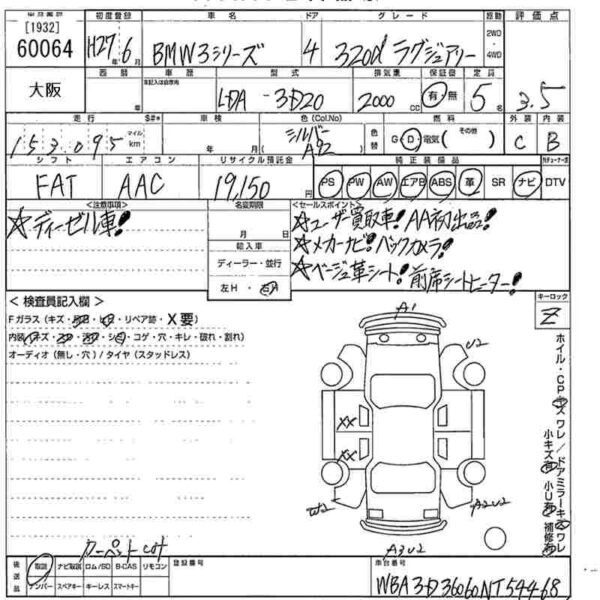 [1932]
60064
大阪
初度登録 車名 ドア グレード 駆動 評価点
H27年6月 BMW3シリーズ 4 320d ラグジュアリー 2WD・4WD 3.5
車歴 型式 排気量 保証書 定員
LDA-3D20 2000cc 有・無 5
走行 車検 色(Col.No) 色替 燃料 外装 内装
153,095 マイル km 年 月 シルバー A92 G・D・電気(その他) C B
シフト エアコン リサイクル預託金 純正装備品
FAT AAC 19,150 PS PW AW エアB ABS 革 SR ナビ DTV
<注意事項> 名変期限 <セールスポイント>
☆ディーゼル車! 月 日 ☆ユーザー買取車!AA初出品!
輸入車 ☆メーカーナビ!バックカメラ!
ディーラー・並行 ☆ベージュ革シート!前席シートヒーター!
左H・右H
<検査員記入欄> キーロック
Fガラス(キズ・リペア跡・X要) Z
内装(キズ・コゲ・穴・キレ・破れ・割れ)
オーディオ(無し・穴)/タイヤ(スタッドレス)
A1
U2
XX
XX
W2
A2U2
A3U2
ホイル・CPキズ ワレ/ドアミラーキズ ワレ
小キズ有 小U有 補修有
カーペットcut
後送品 取説 ナビ取説 ロム/SD B-CAS リモコン 登録番号 車台番号
ナンバー スペアキー キーレス スマートキー WBA3D36060NT54468